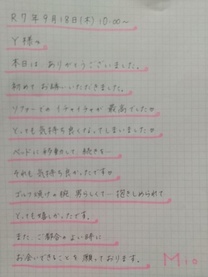 R7年9月18日(木) 10:00~
Y様♡
本日は ありがとうございました。
初めて お会いいただきました。
ソファーでの イチャイチャが 最高でした♡
とっても 気持ち良くなってしまいました♡
ベッドに移動して 続きを…
それも 気持ち良かったです♡
ゴルフ焼けの腕、男らしくて… 抱きしめられて
とっても嬉しかったです。
また ご都合のよい時に
お会いできることを 願っております。
Mio